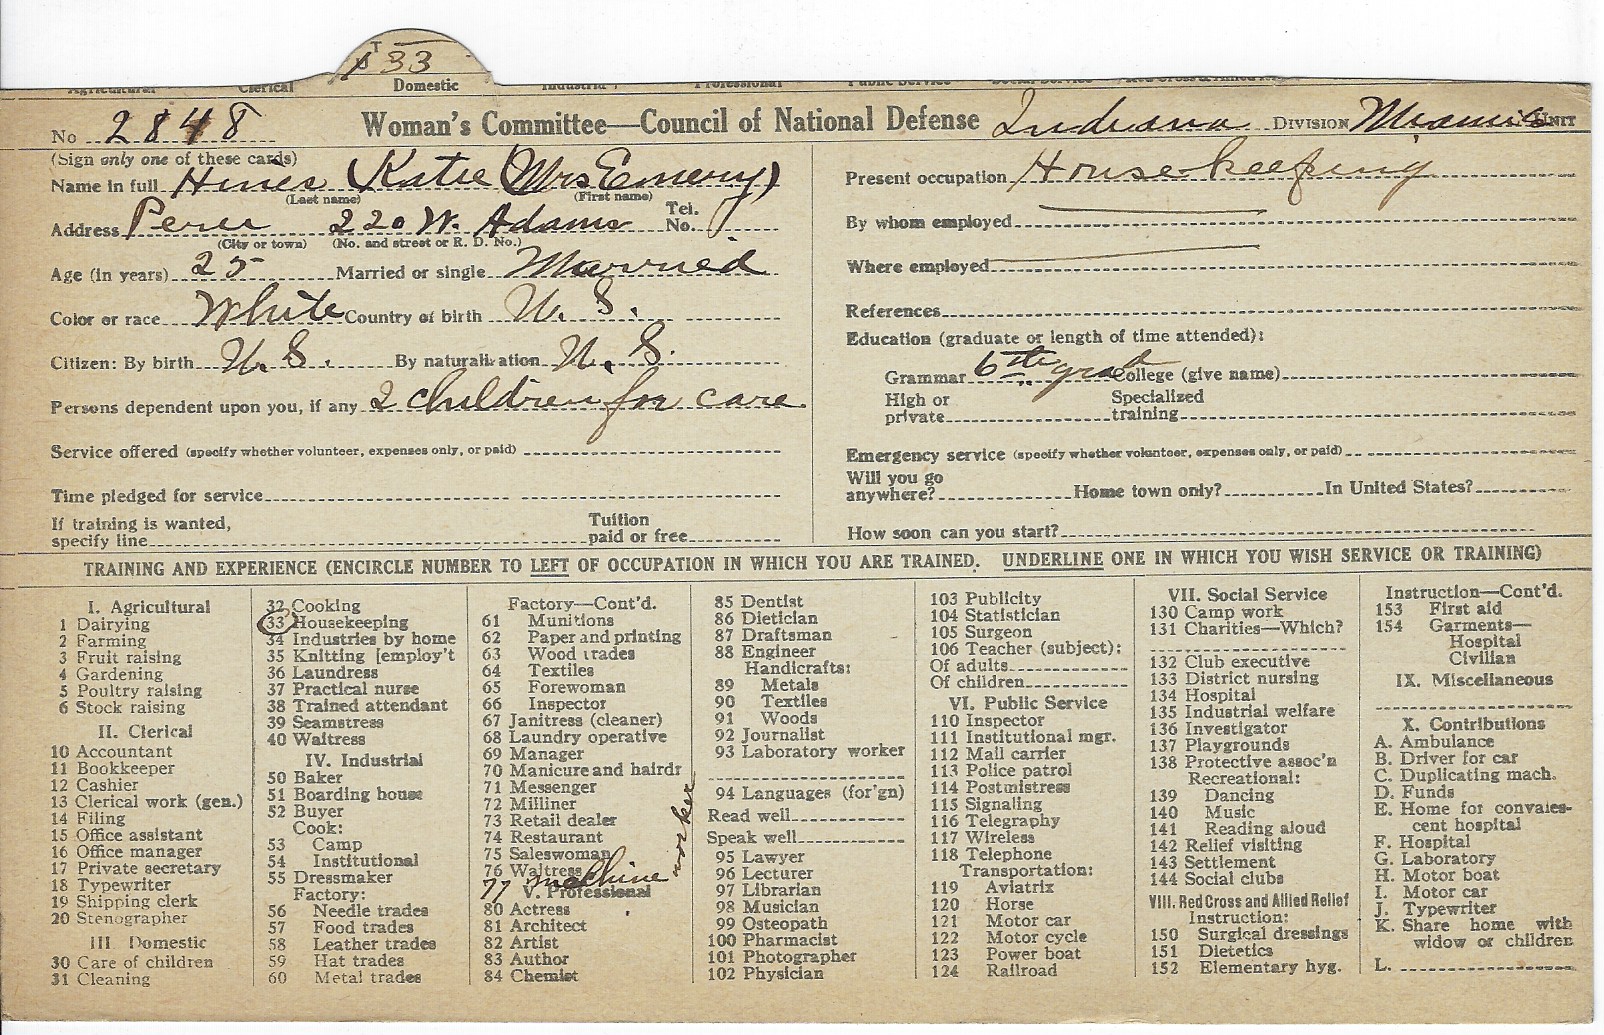 T 33
Agricultural Clerical Domestic Industrial Professional Public Service Social Service Red Cross & Allied
No. 2848 Woman's Committee—Council of National Defense Indiana DIVISION Miami UNIT
(Sign only one of these cards)
Name in full Hines Katie (Mrs Emery)
(Last name) (First name)
Address Peru 220 W. Adams Tel. No.
(City or town) (No. and street or R. D. No.)
Age (in years) 25 Married or single Married
Color or race White Country of birth U. S.
Citizen: By birth U. S. By naturalization U. S.
Persons dependent upon you, if any 2 children for care
Service offered (specify whether volunteer, expenses only, or paid)
Time pledged for service
If training is wanted,
specify line
Tuition
paid or free
Present occupation Housekeeping
By whom employed
Where employed
References
Education (graduate or length of time attended):
Grammar 6th grad College (give name)
High or
private
Specialized
training
Emergency service (specify whether volunteer, expenses only, or paid)
Will you go
anywhere? Home town only? In United States?
How soon can you start?
TRAINING AND EXPERIENCE (ENCIRCLE NUMBER TO LEFT OF OCCUPATION IN WHICH YOU ARE TRAINED. UNDERLINE ONE IN WHICH YOU WISH SERVICE OR TRAINING)
I. Agricultural
1 Dairying
2 Farming
3 Fruit raising
4 Gardening
5 Poultry raising
6 Stock raising
II. Clerical
10 Accountant
11 Bookkeeper
12 Cashier
13 Clerical work (gen.)
14 Filing
15 Office assistant
16 Office manager
17 Private secretary
18 Typewriter
19 Shipping clerk
20 Stenographer
III Domestic
30 Care of children
31 Cleaning
32 Cooking
33 Housekeeping
34 Industries by home
35 Knitting [employ't
36 Laundress
37 Practical nurse
38 Trained attendant
39 Seamstress
40 Waitress
IV. Industrial
50 Baker
51 Boarding house
52 Buyer
Cook:
53 Camp
54 Institutional
55 Dressmaker
Factory:
56 Needle trades
57 Food trades
58 Leather trades
59 Hat trades
60 Metal trades
Factory—Cont'd.
61 Munitions
62 Paper and printing
63 Wood trades
64 Textiles
65 Forewoman
66 Inspector
67 Janitress (cleaner)
68 Laundry operative
69 Manager
70 Manicure and hairdr
71 Messenger
72 Milliner
73 Retail dealer
74 Restaurant
75 Saleswoman
76 Waitress
77 machine worker
V. Professional
80 Actress
81 Architect
82 Artist
83 Author
84 Chemist
85 Dentist
86 Dietician
87 Draftsman
88 Engineer
Handicrafts:
89 Metals
90 Textiles
91 Woods
92 Journalist
93 Laboratory worker
94 Languages (for'gn)
Read well
Speak well
95 Lawyer
96 Lecturer
97 Librarian
98 Musician
99 Osteopath
100 Pharmacist
101 Photographer
102 Physician
103 Publicity
104 Statistician
105 Surgeon
106 Teacher (subject):
Of adults
Of children
VI. Public Service
110 Inspector
111 Institutional mgr.
112 Mail carrier
113 Police patrol
114 Postmistress
115 Signaling
116 Telegraphy
117 Wireless
118 Telephone
Transportation:
119 Aviatrix
120 Horse
121 Motor car
122 Motor cycle
123 Power boat
124 Railroad
VII. Social Service
130 Camp work
131 Charities—Which?
132 Club executive
133 District nursing
134 Hospital
135 Industrial welfare
136 Investigator
137 Playgrounds
138 Protective assoc'n
Recreational:
139 Dancing
140 Music
141 Reading aloud
142 Relief visiting
143 Settlement
144 Social clubs
VIII. Red Cross and Allied Relief
Instruction:
150 Surgical dressings
151 Dietetics
152 Elementary hyg.
Instruction—Cont'd.
153 First aid
154 Garments—
Hospital
Civilian
IX. Miscellaneous
X. Contributions
A. Ambulance
B. Driver for car
C. Duplicating mach.
D. Funds
E. Home for convales-
cent hospital
F. Hospital
G. Laboratory
H. Motor boat
I. Motor car
J. Typewriter
K. Share home with
widow or children
L.